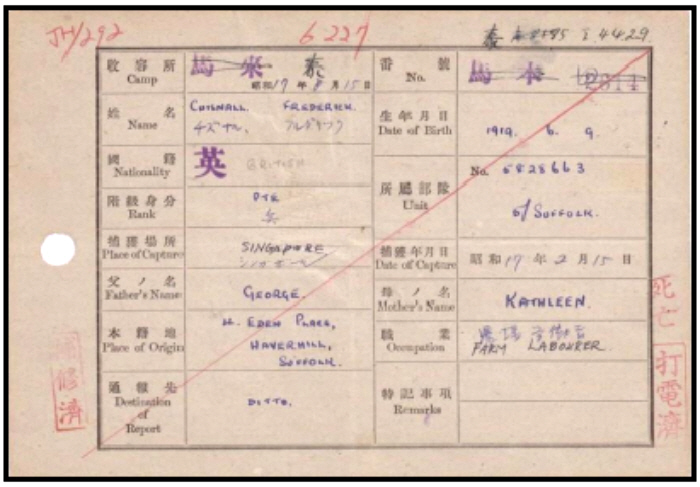 JH/292
6227
I.4429
收容所
Camp
馬来 泰
昭和17年8月15日
番號
No.
馬本
姓名
Name
FREDERICK
生年月日
Date of Birth
1919. 6. 9.
國籍
Nationality
英 BRITISH
所屬部隊
Unit
No. 5828663
5/SUFFOLK.
階級身分
Rank
PTE
兵
捕獲場所
Place of Capture
SINGAPORE
捕獲年月日
Date of Capture
昭和17年2月15日
父ノ名
Father's Name
GEORGE.
母ノ名
Mother's Name
KATHLEEN.
本籍地
Place of Origin
EDEN PLACE,
HAVERHILL,
SUFFOLK.
職業
Occupation
FARM LABOURER.
通報先
Destination
of
Report
DITTO.
特記事項
Remarks
死亡
打電濟
修濟